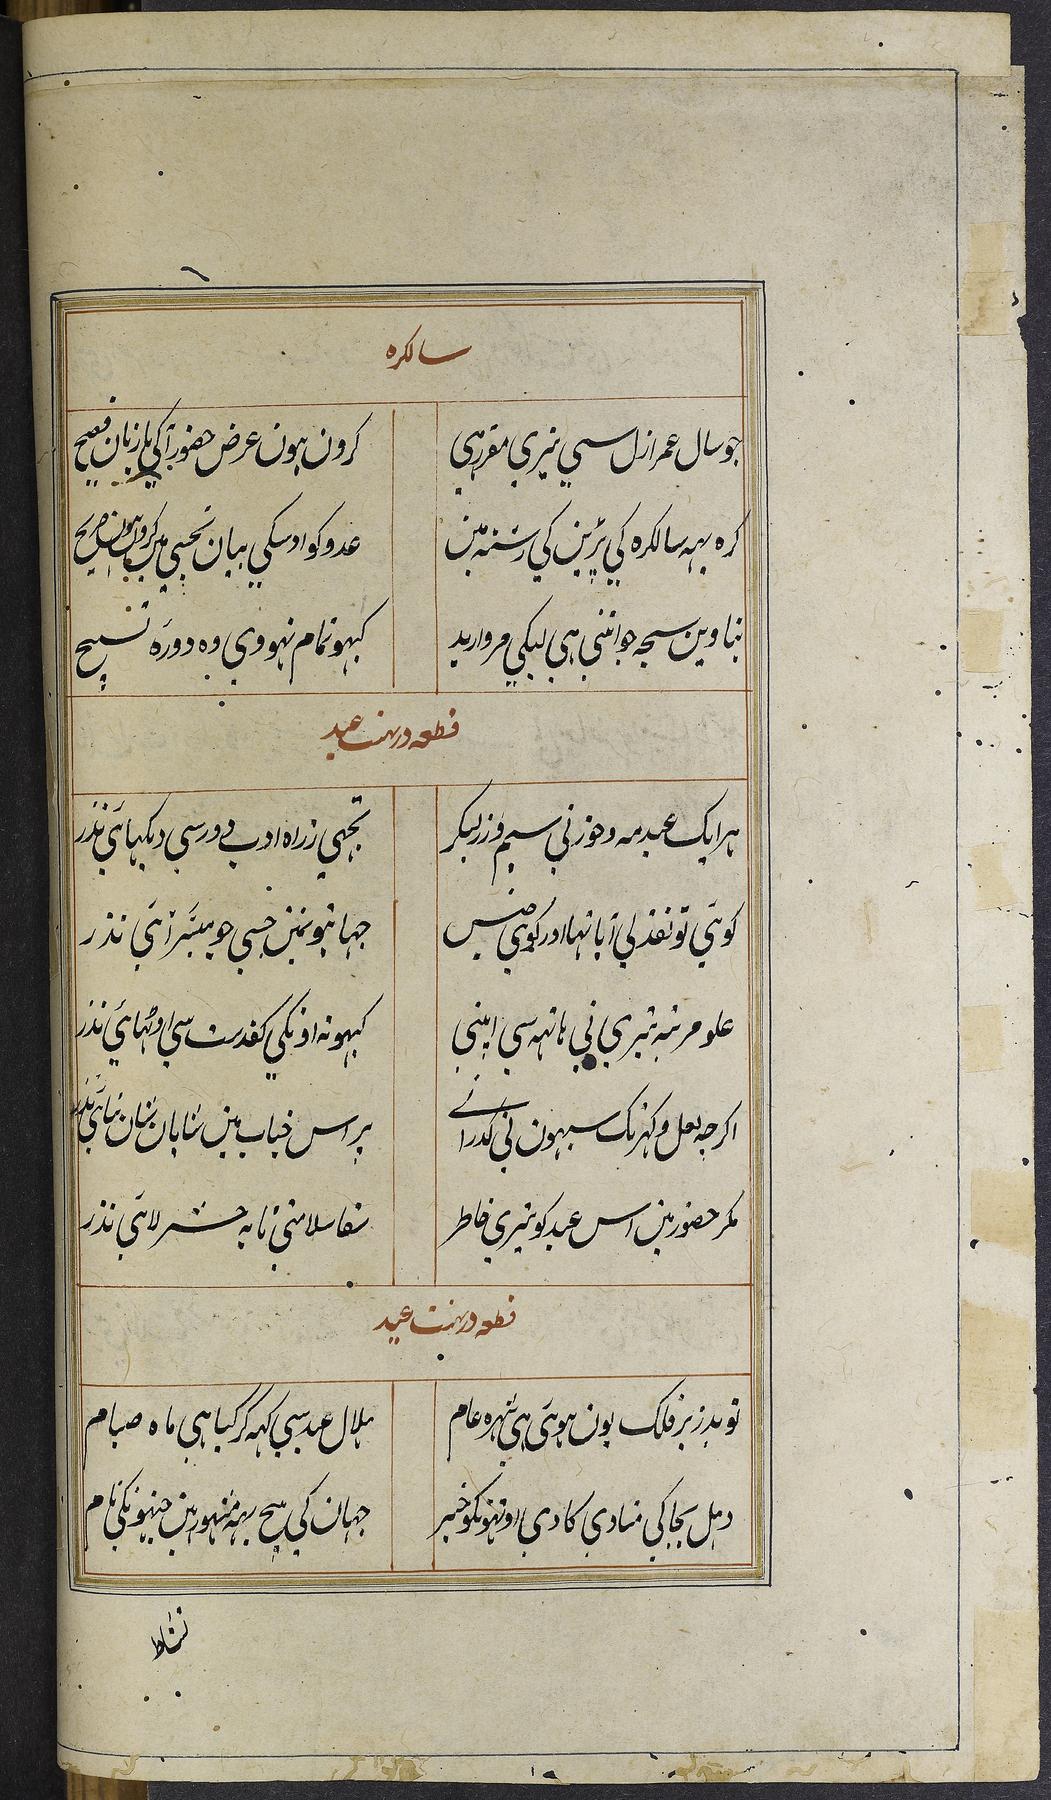 سالکره
جو سال عمر ازل سی تیری مقرر ہی
کرون ہون عرض حضور آکی با زبان فصیح
کره یہہ سالکره کی پڑین کی رشته مین
عدو کو اوسکی بیان تجهی مین کرون ہون صریح
بناوین سبحه جو اتنی ہی لیکی مروارید
کبہو تمام نہووی وه دورهٔ تسبیح
قطعه در تهنیت عید
ہر ایک عید مه و خور نی سیم و زر لیکر
تجهی ز راه ادب دور سی دیکهائی نذر
کوئی تو نقد لی آیا تها اور کوئی جنس
جہا نیو نمین جسی جو میسر آئی نذر
علو مرتبه تیری نی ہاتهه سی اپنی
کبہو نه اونکی کفدست سی اوٹهائی نذر
اکرچه لعل و کہر تک سبہون نی کذرانے
پر اس جناب مین شایان شان نپائی نذر
مکر حضور مین اس عید کو تیری خاطر
شفا سلامتی تا به حشر لائی نذر
قطعه در تهنیت عید
نوید زیر فلک یون ہوئی ہی شهره عام
ہلال عید سی کہه کر کیا ہی ماه صیام
دہل بجا کی منادی کا دی اونہونکو خبر
جہان کی بیچ یہه مشہور ہین جنہونکی نام
نشاط
۱۵